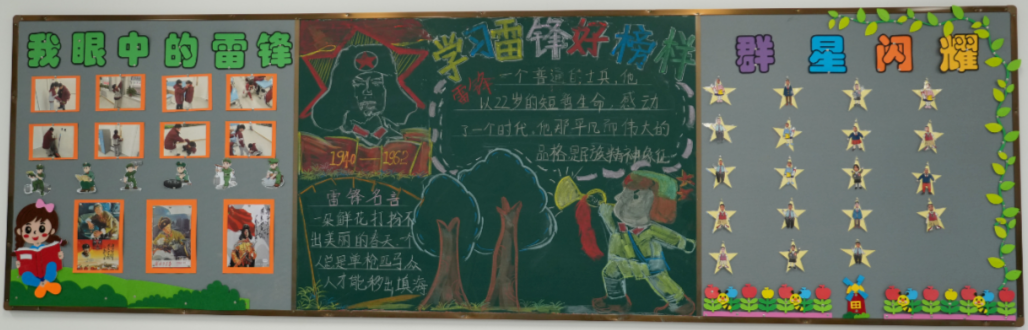 我眼中的雷锋
学习雷锋好榜样
雷锋
一个普通的士兵，他
以22岁的短暂生命，感动
了一个时代，他那平凡而伟大的
品格是民族精神
1940—1962
雷锋名言
一朵鲜花打扮不
出美丽的春天一个
人总是单枪匹马众
人才能移山填海
群星闪耀